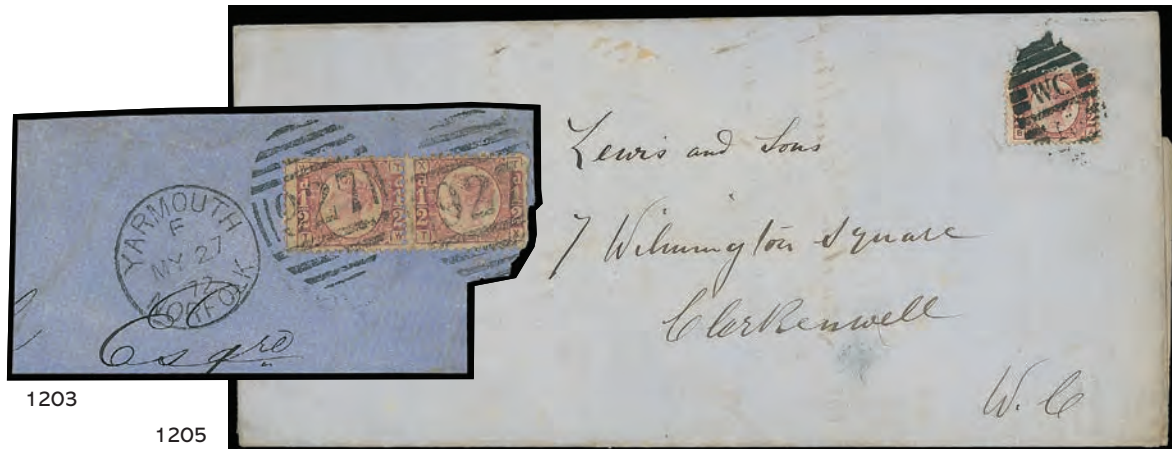 YARMOUTH
F
MY 27
72
NORFOLK
927
92
Esqre
1203
1205
WC
Lewis and Sons
7 Wilmington Square
Clerkenwell
W. C